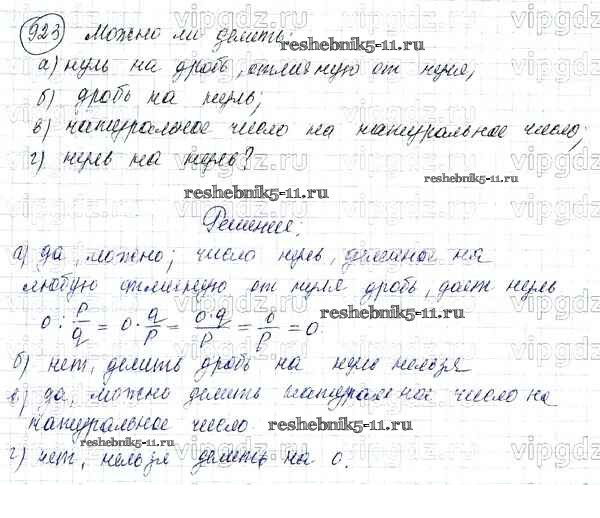 923 Можно ли делить:
reshebnik5-11.ru
а) нуль на дробь, отличную от нуля,
б) дробь на нуль;
в) натуральное число на натуральное число;
г) нуль на нуль?
reshebnik5-11.ru
reshebnik5-11.ru
Решение:
а) да, можно; число нуль, деленное на
любую отличную от нуля дробь, дает нуль
0 : p/q = 0 · q/p = 0·q/p = 0/p = 0.
reshebnik5-11.ru
б) нет, делить дробь на нуль нельзя
в) да, можно делить натуральное число на
натуральное число
reshebnik5-11.ru
reshebnik5-11.ru
г) нет, нельзя делить на 0.